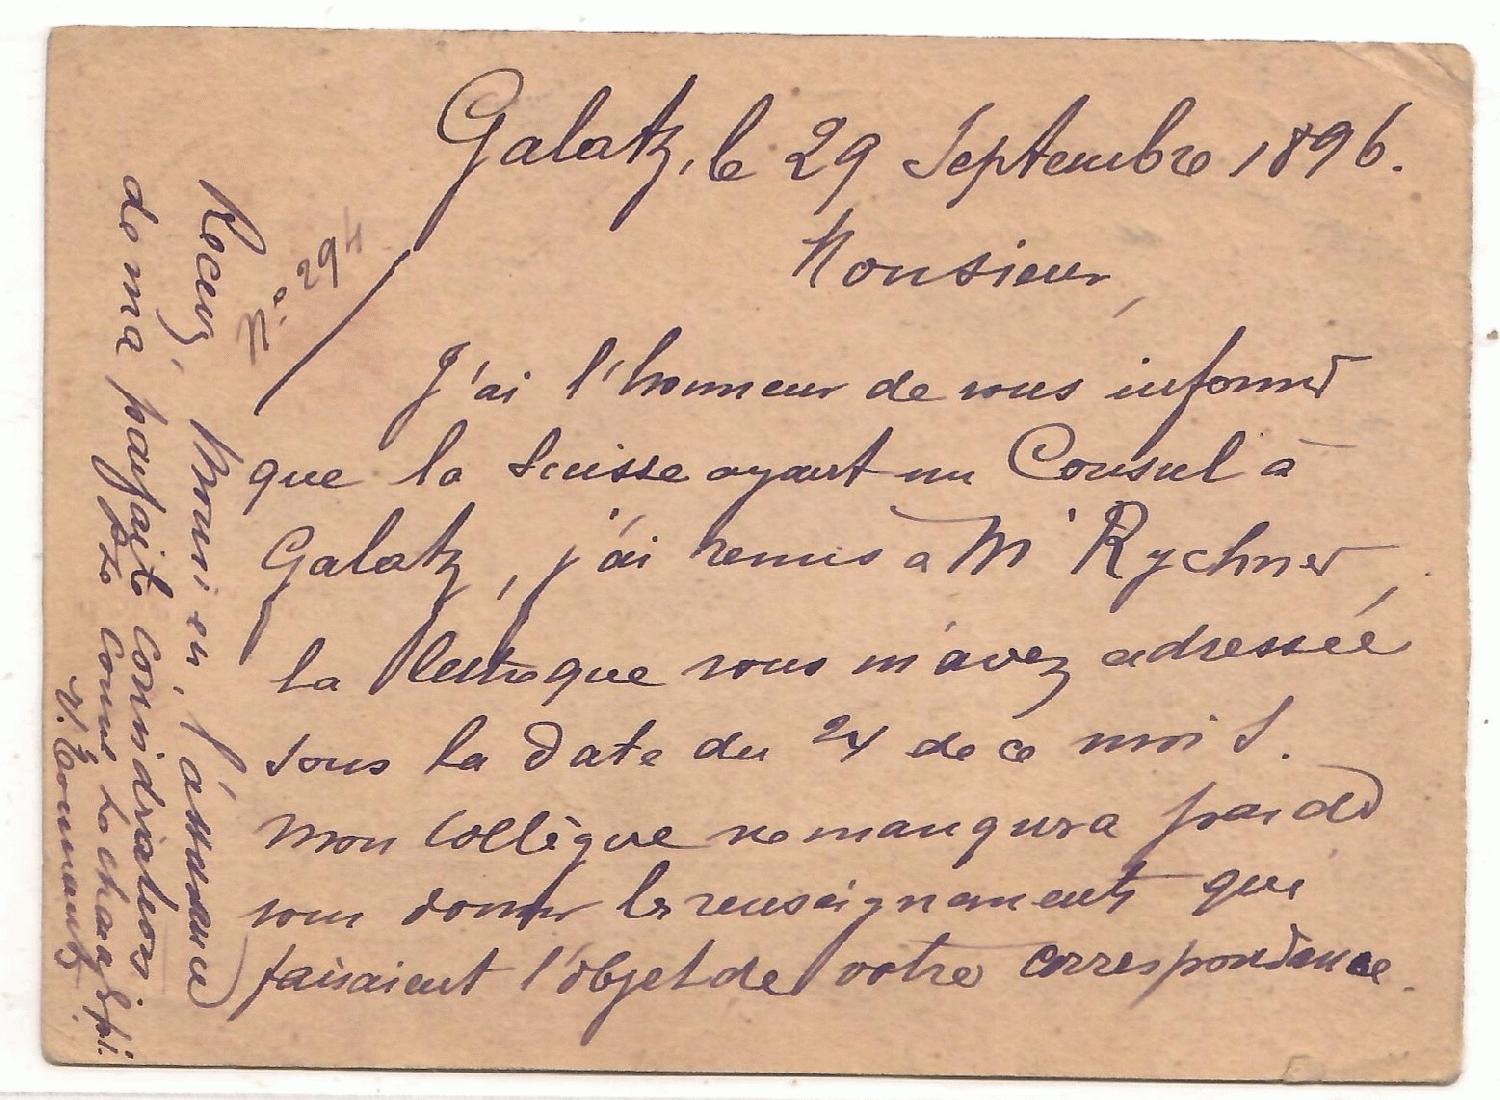 Galatz, le 29 Septembre 1896.
N.o 294
Monsieur,
J'ai l'honneur de vous informer
que la Suisse ayant un Consul à
Galatz, j'ai remis a Mr Rychner,
la lettre que vous m'avez adressée
sous la date du 24 de ce mois.
Mon Collègue ne manqura pas de
vous donner les renseignements qui
faisaient l'objet de votre correspondance.
Recevez, Monsieur, l'assurance
de ma parfaite considération.